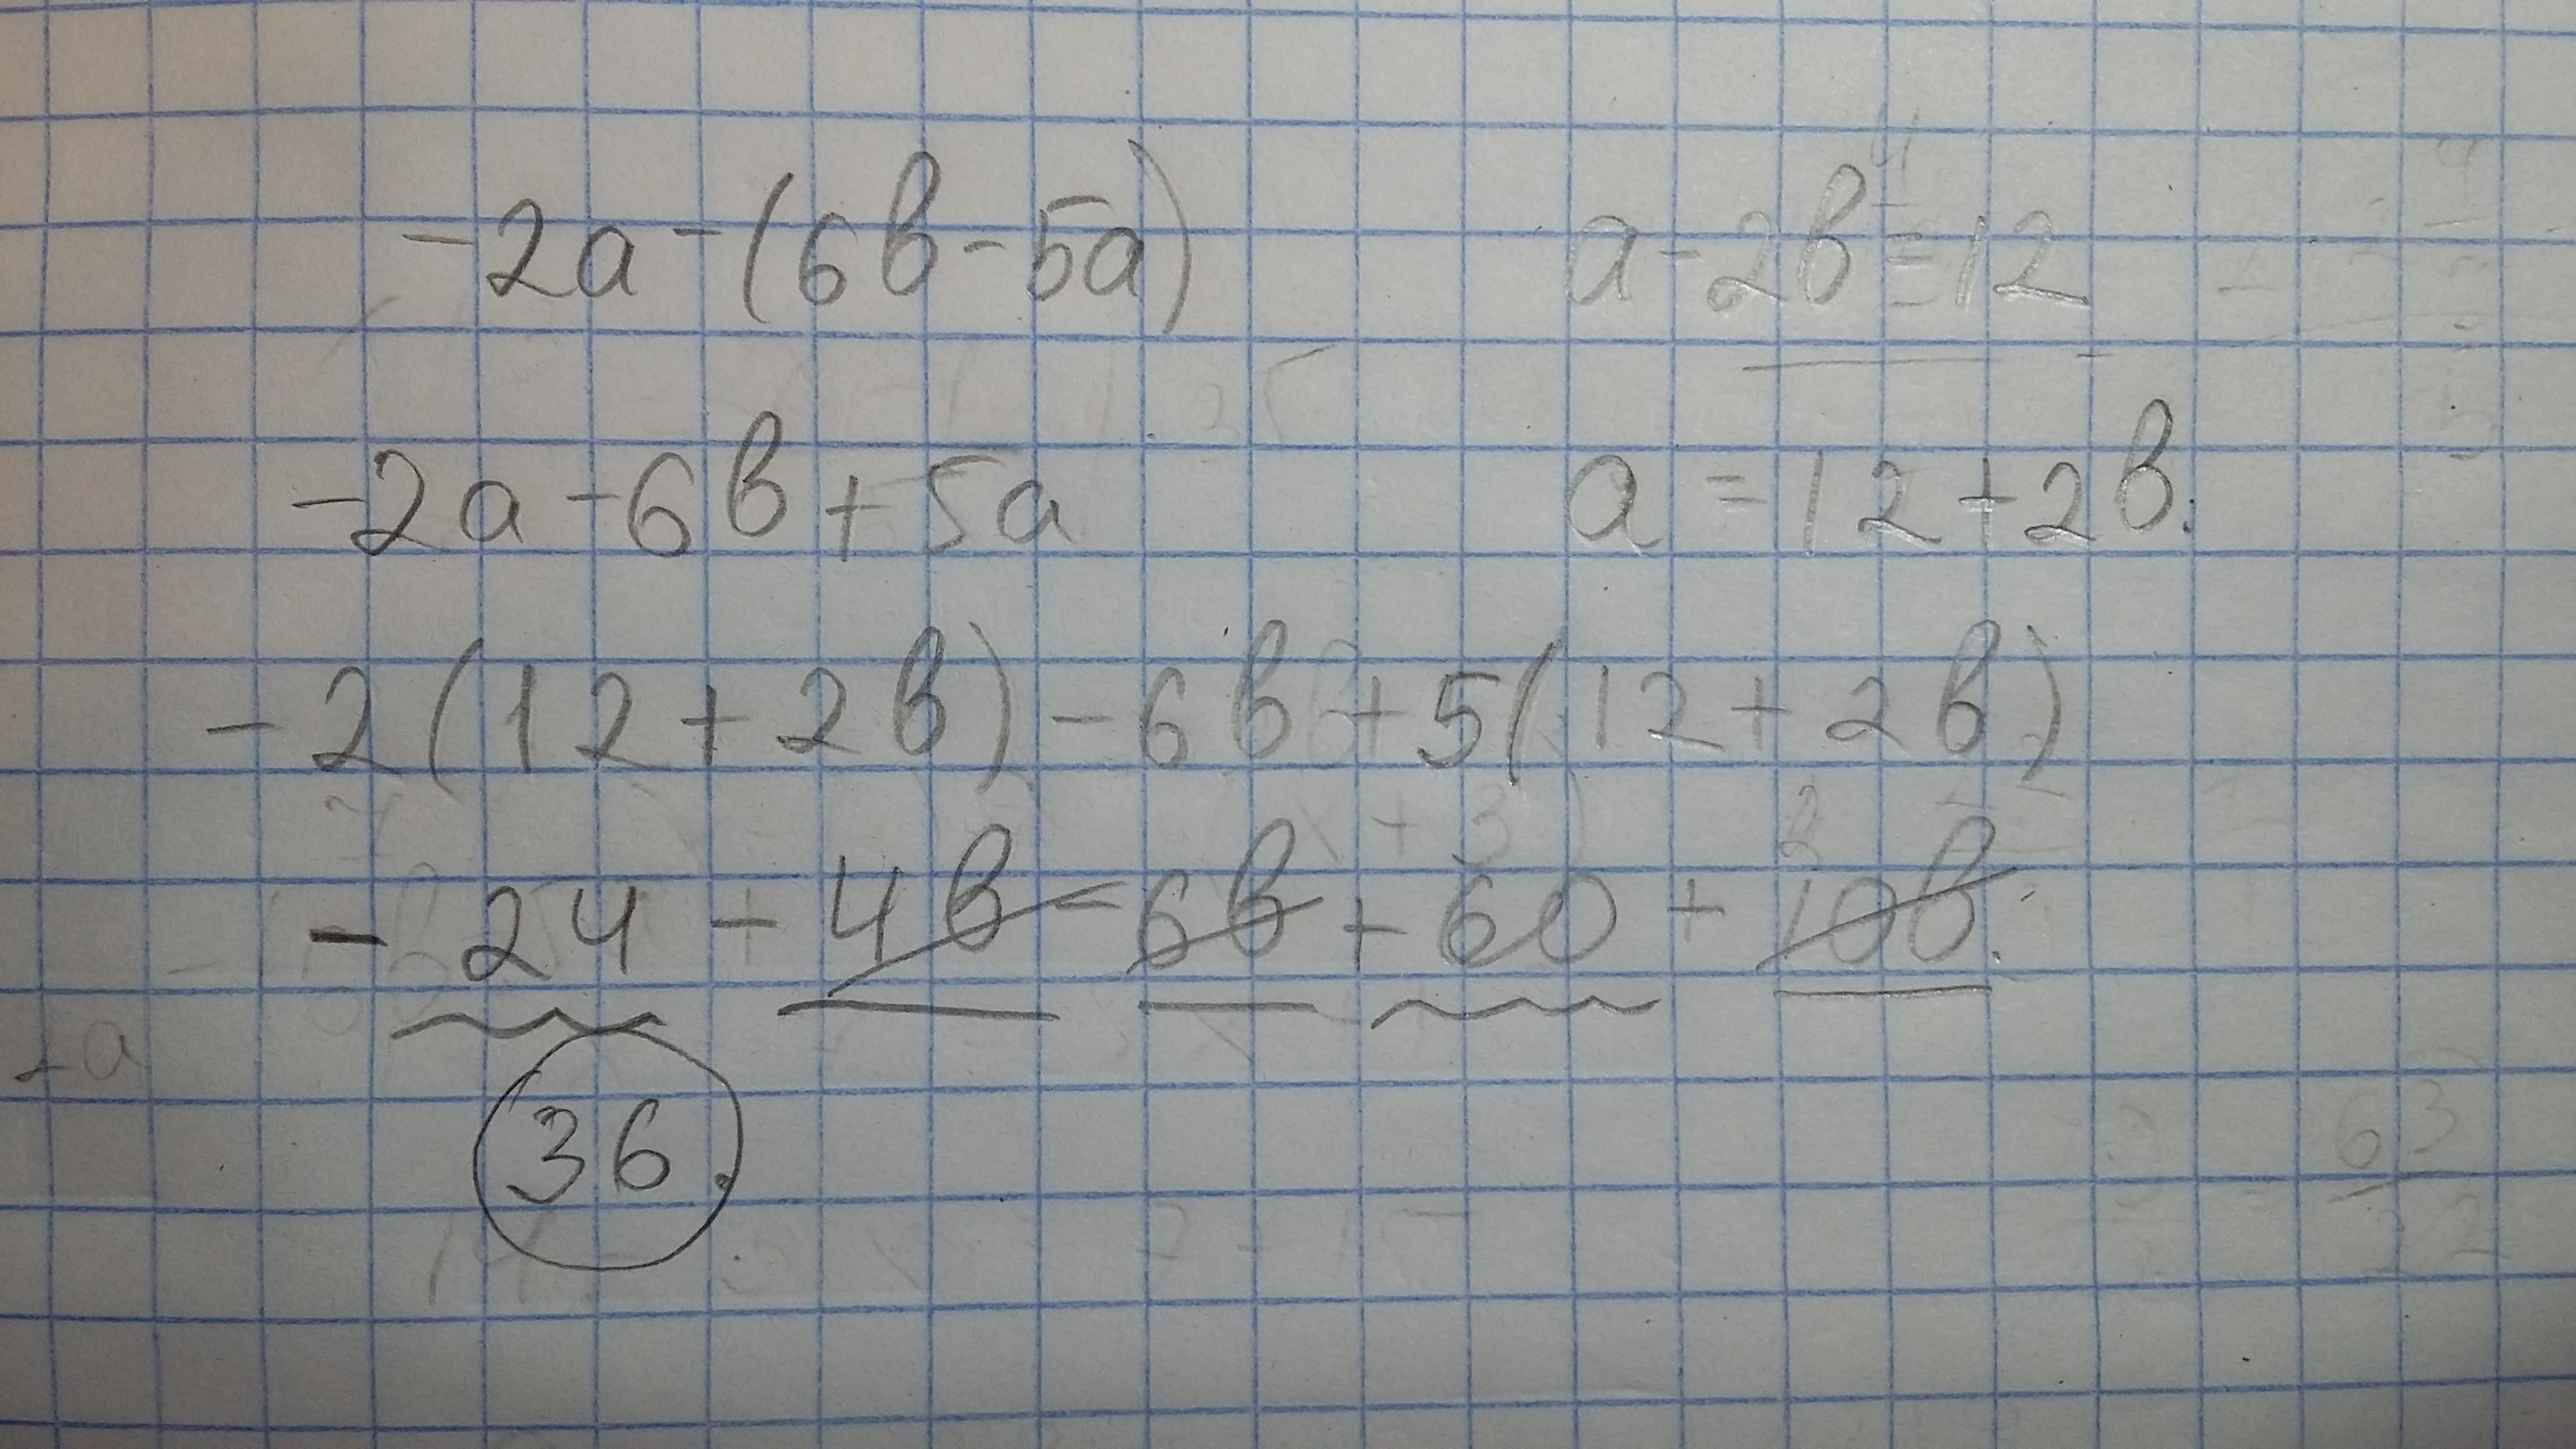 -2a-(6b-5a)
a-2b=12
-2a-6b+5a
a=12+2b.
-2(12+2b)-6b+5(12+2b)
-24-4b-6b+60+10b.
36.
63
22